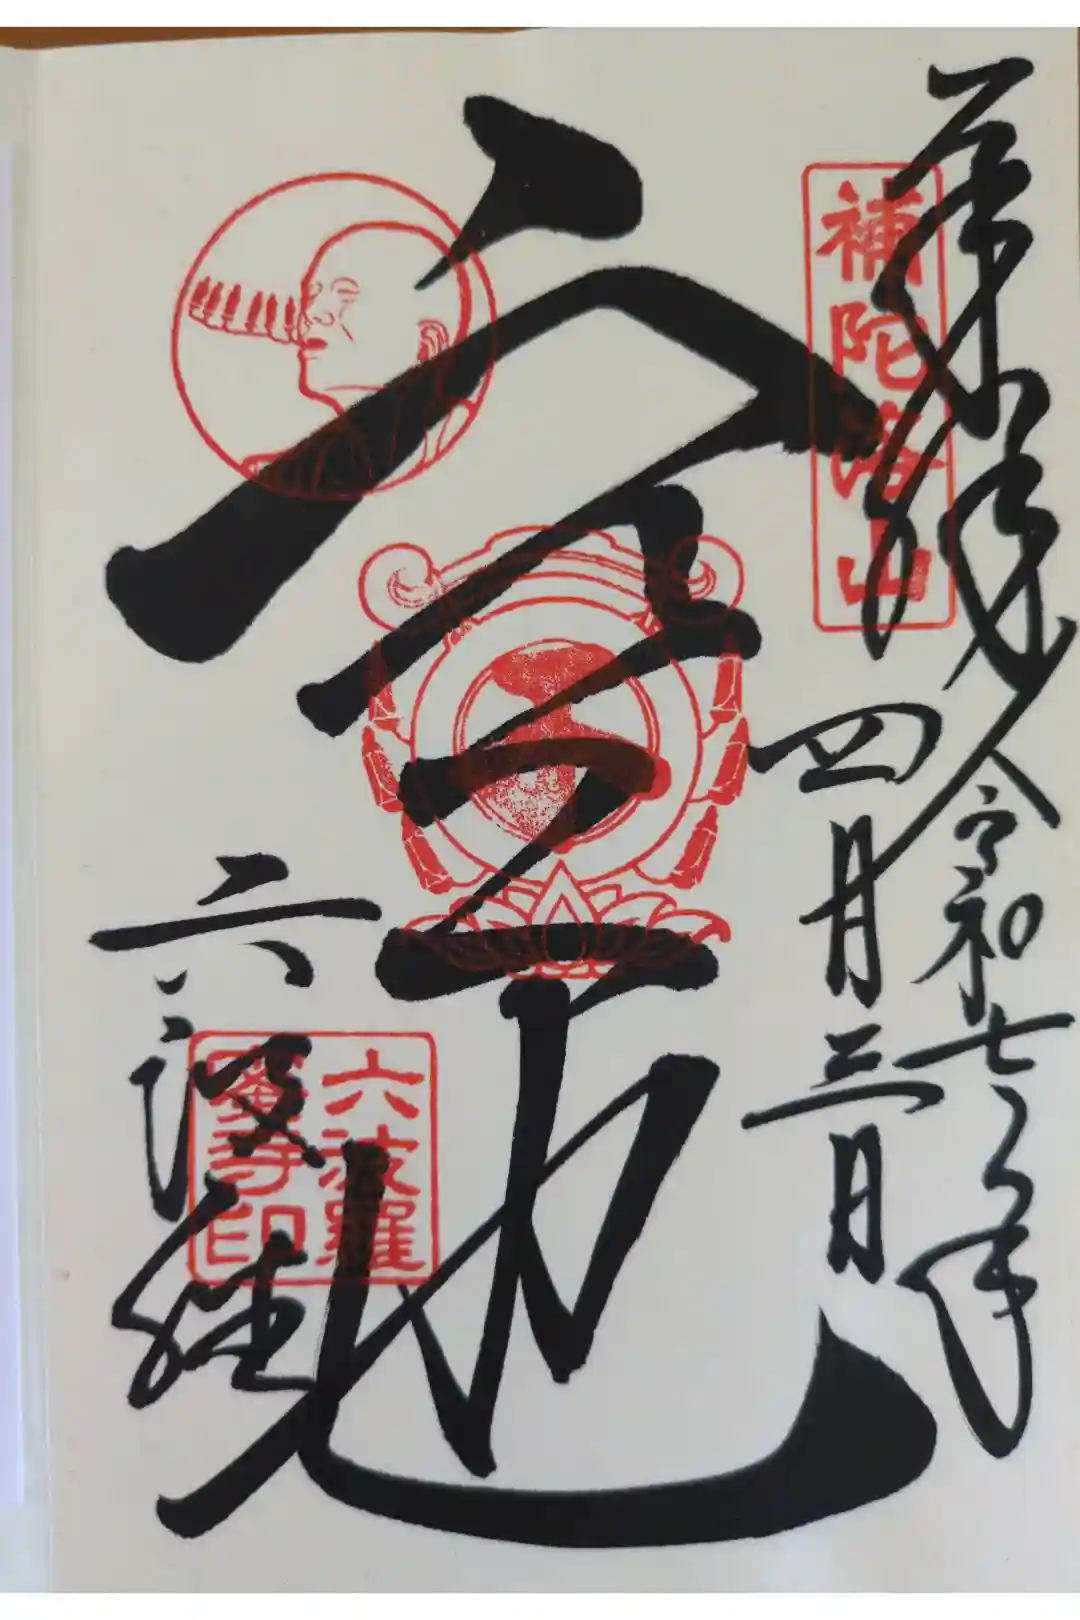 奉拝 令和七年
四月三日
補陀洛山
六波
六波羅
蜜寺印